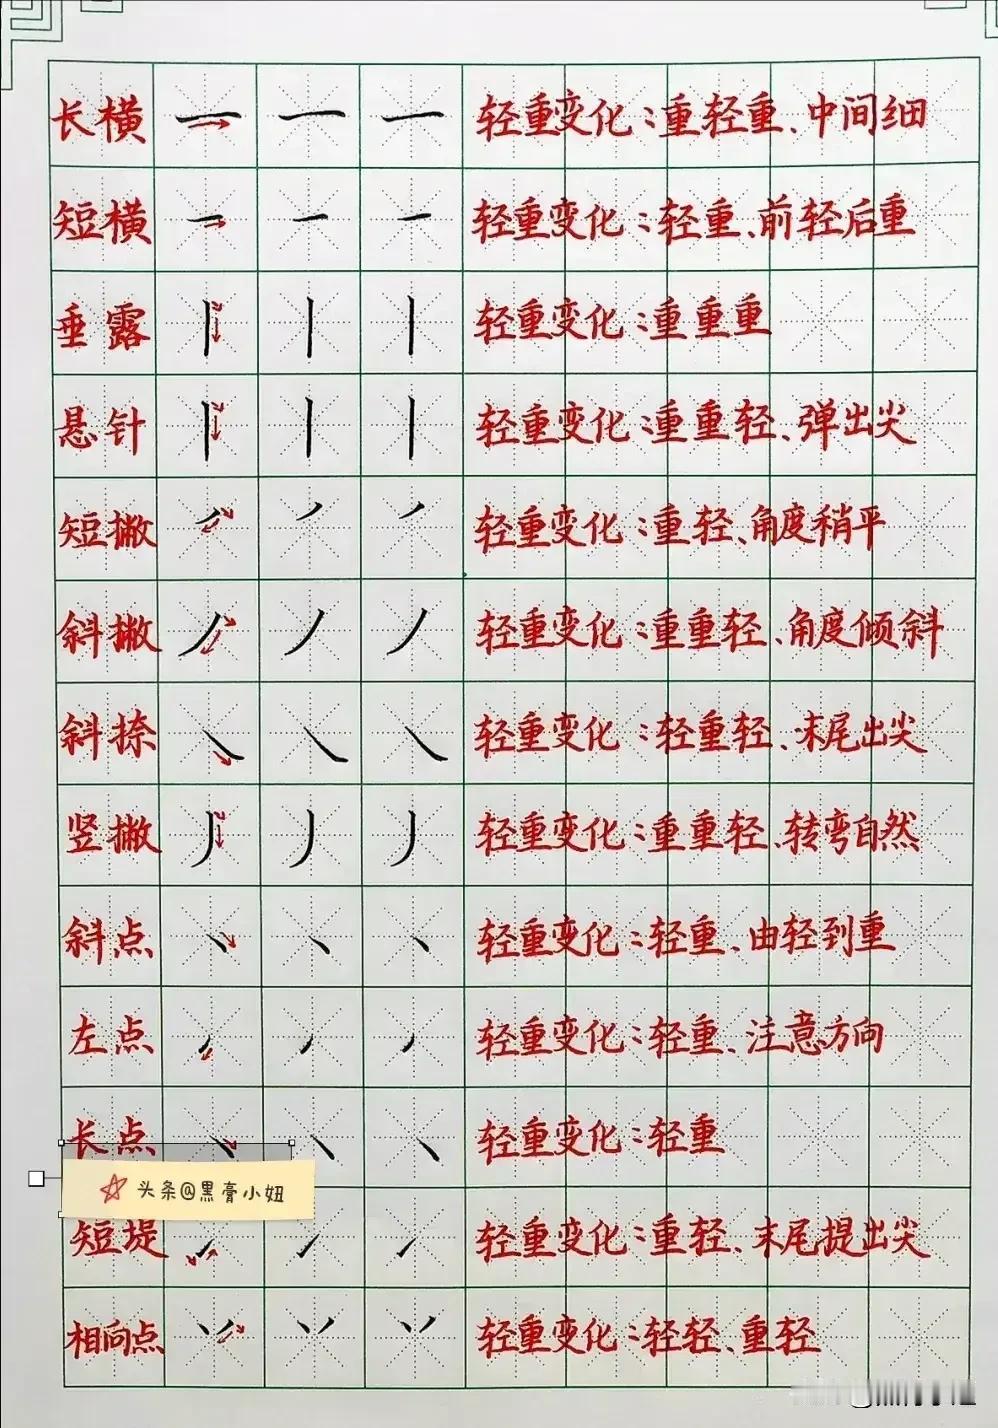 长横 轻重变化：重轻重、中间细
短横 轻重变化：轻重、前轻后重
垂露 轻重变化：重重重
悬针 轻重变化：重重轻、弹出尖
短撇 轻重变化：重轻、角度稍平
斜撇 轻重变化：重重轻、角度倾斜
斜捺 轻重变化：轻重轻、末尾出尖
竖撇 轻重变化：重重轻、转弯自然
斜点 轻重变化：轻重、由轻到重
左点 轻重变化：轻重、注意方向
长点 轻重变化：轻重
头条@黑膏小妞
短堤 轻重变化：重轻、末尾提出尖
相向点 轻重变化：轻轻、重轻